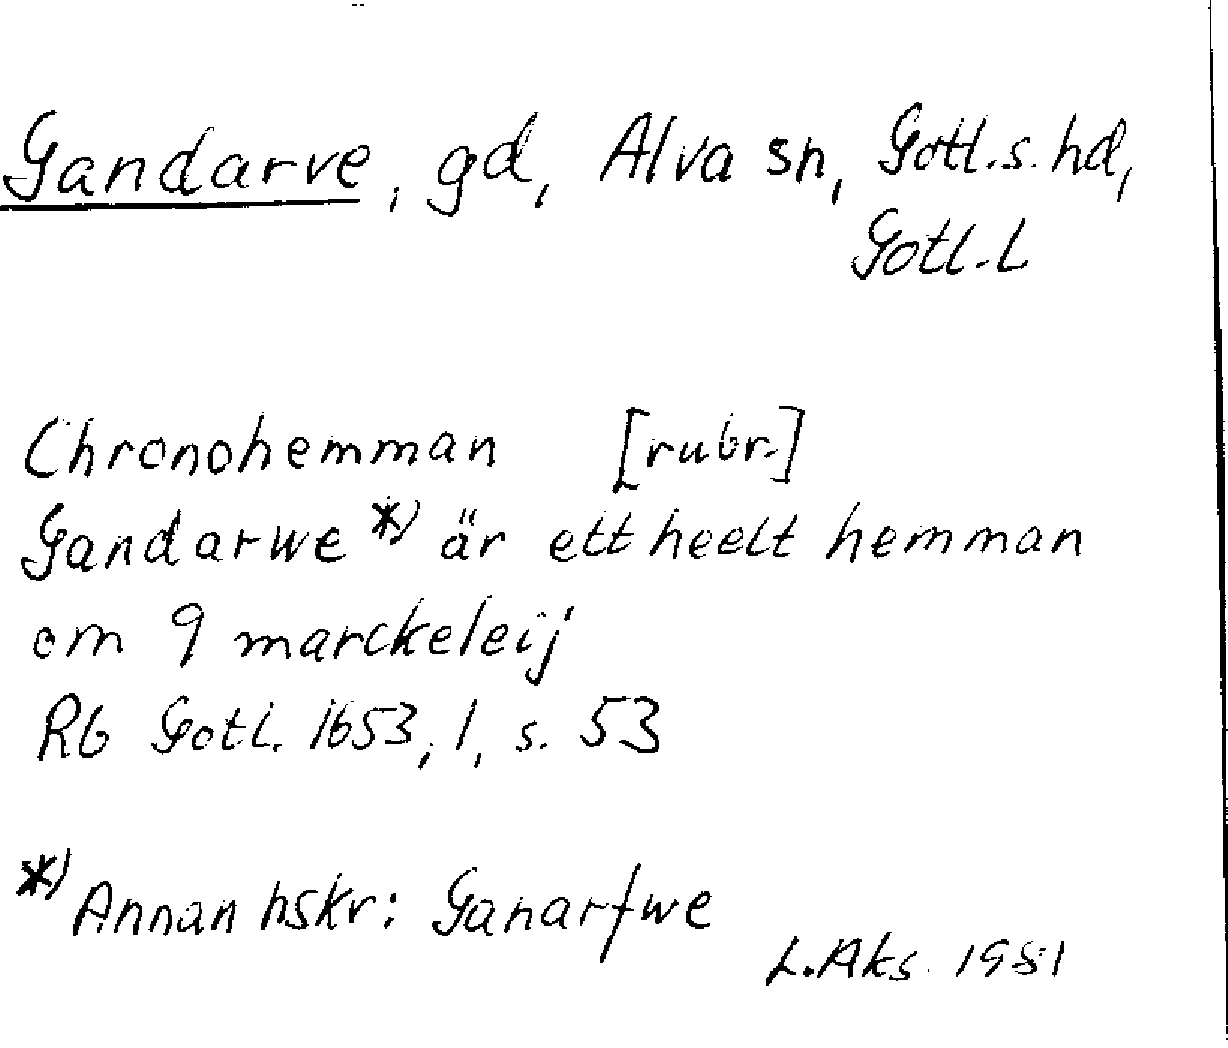 Gandarve, gd, Alva sn, Gotl.s. hd,
Gotl.L
Chronohemman [rubr.]
Gandarwe *) är ett heelt hemman
om 9 marckeleij
Rb Gotl. 1653, 1, s. 53
*) Annan hskr: Ganarfwe
L.Aks. 1981